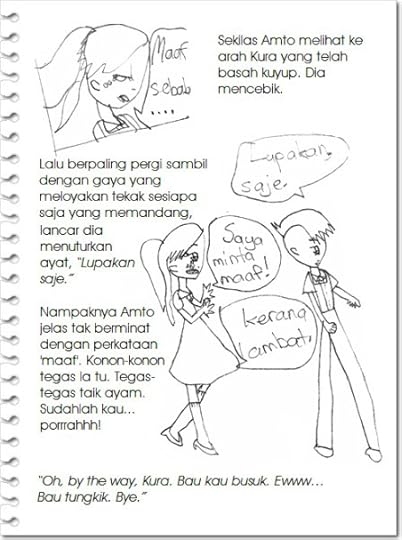 Maaf
sebab
....
Sekilas Amto melihat ke
arah Kura yang telah
basah kuyup. Dia
mencebik.
Lalu berpaling pergi sambil
dengan gaya yang
meloyakan tekak sesiapa
saja yang memandang,
lancar dia
menuturkan
ayat, “Lupakan
saje.”
Lupakan
saje.
Saya
minta
maaf!
kerana
lambat.
Nampaknya Amto
jelas tak berminat
dengan perkataan
'maaf'. Konon-konon
tegas la tu. Tegas-
tegas taik ayam.
Sudahlah kau...
porrrahhh!
“Oh, by the way, Kura. Bau kau busuk. Ewww...
Bau tungkik. Bye.”